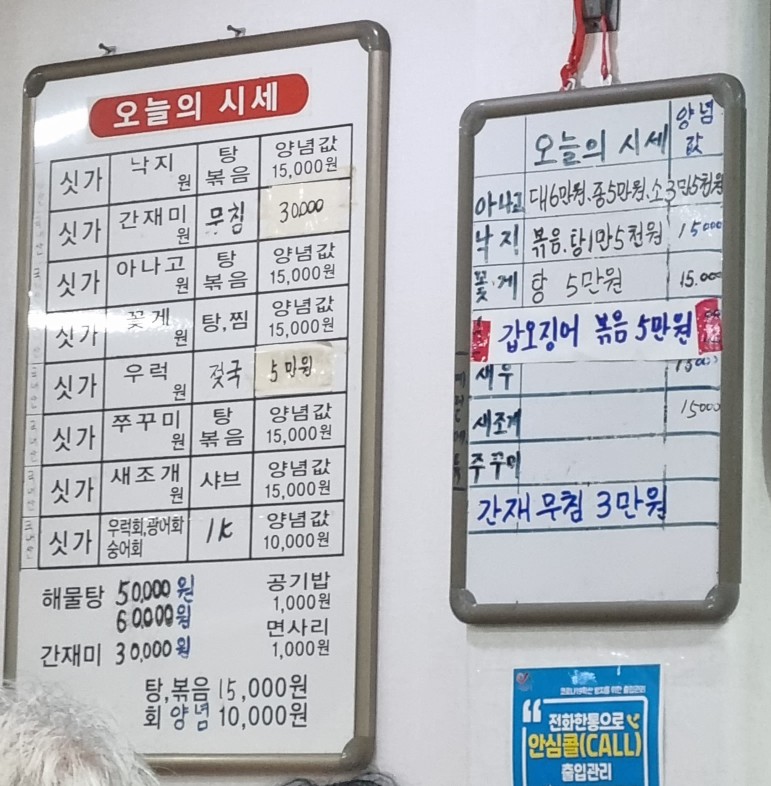 오늘의 시세
싯가 낙지 원 탕 볶음 양념값 15,000원
싯가 간재미 원 무침 30,000
싯가 아나고 원 탕 볶음 양념값 15,000원
싯가 꽃게 원 탕,찜 양념값 15,000원
싯가 우럭 원 젓국 5만원
싯가 쭈꾸미 원 탕 볶음 양념값 15,000원
싯가 새조개 원 샤브 양념값 15,000원
싯가 우럭회,광어회 숭어회 1K 양념값 10,000원
해물탕 50,000원 공기밥
60,000원 1,000원
간재미 30,000원 면사리
1,000원
탕,볶음 15,000원
회 양념 10,000원
오늘의 시세 양념 값
아나고 대6만원.중5만원.소3만5천원
낙지 볶음.탕1만5천원 15000
꽃.게 탕 5만원 15.000
갑오징어 볶음 5만원
새우
새조개 15000
주꾸미
간재 무침 3만원
코로나확산 방지를 위한 출입관리
“전화한통으로
안심콜(CALL)
출입관리